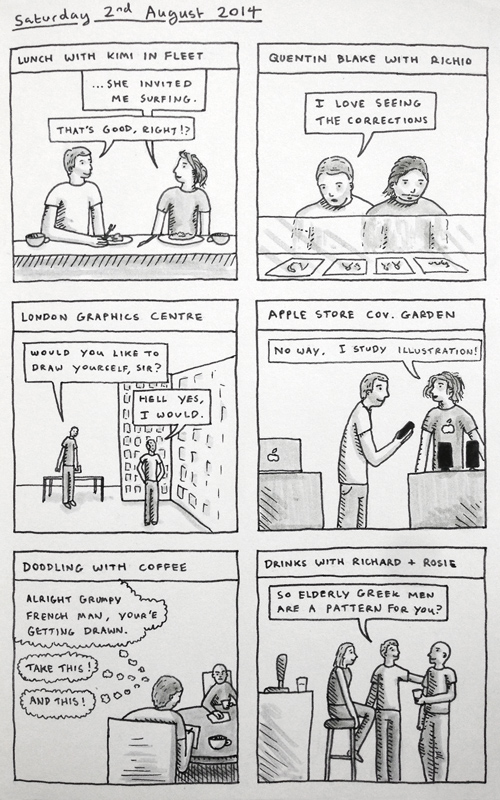 Saturday 2nd August 2014
LUNCH WITH KIMI IN FLEET
...SHE INVITED
ME SURFING.
THAT'S GOOD, RIGHT!?
QUENTIN BLAKE WITH RICHIO
I LOVE SEEING
THE CORRECTIONS
LONDON GRAPHICS CENTRE
WOULD YOU LIKE TO
DRAW YOURSELF, SIR?
HELL YES,
I WOULD.
APPLE STORE COV. GARDEN
NO WAY, I STUDY ILLUSTRATION!
DOODLING WITH COFFEE
ALRIGHT GRUMPY
FRENCH MAN, YOUR'E
GETTING DRAWN.
TAKE THIS!
AND THIS!
DRINKS WITH RICHARD + ROSIE
SO ELDERLY GREEK MEN
ARE A PATTERN FOR YOU?